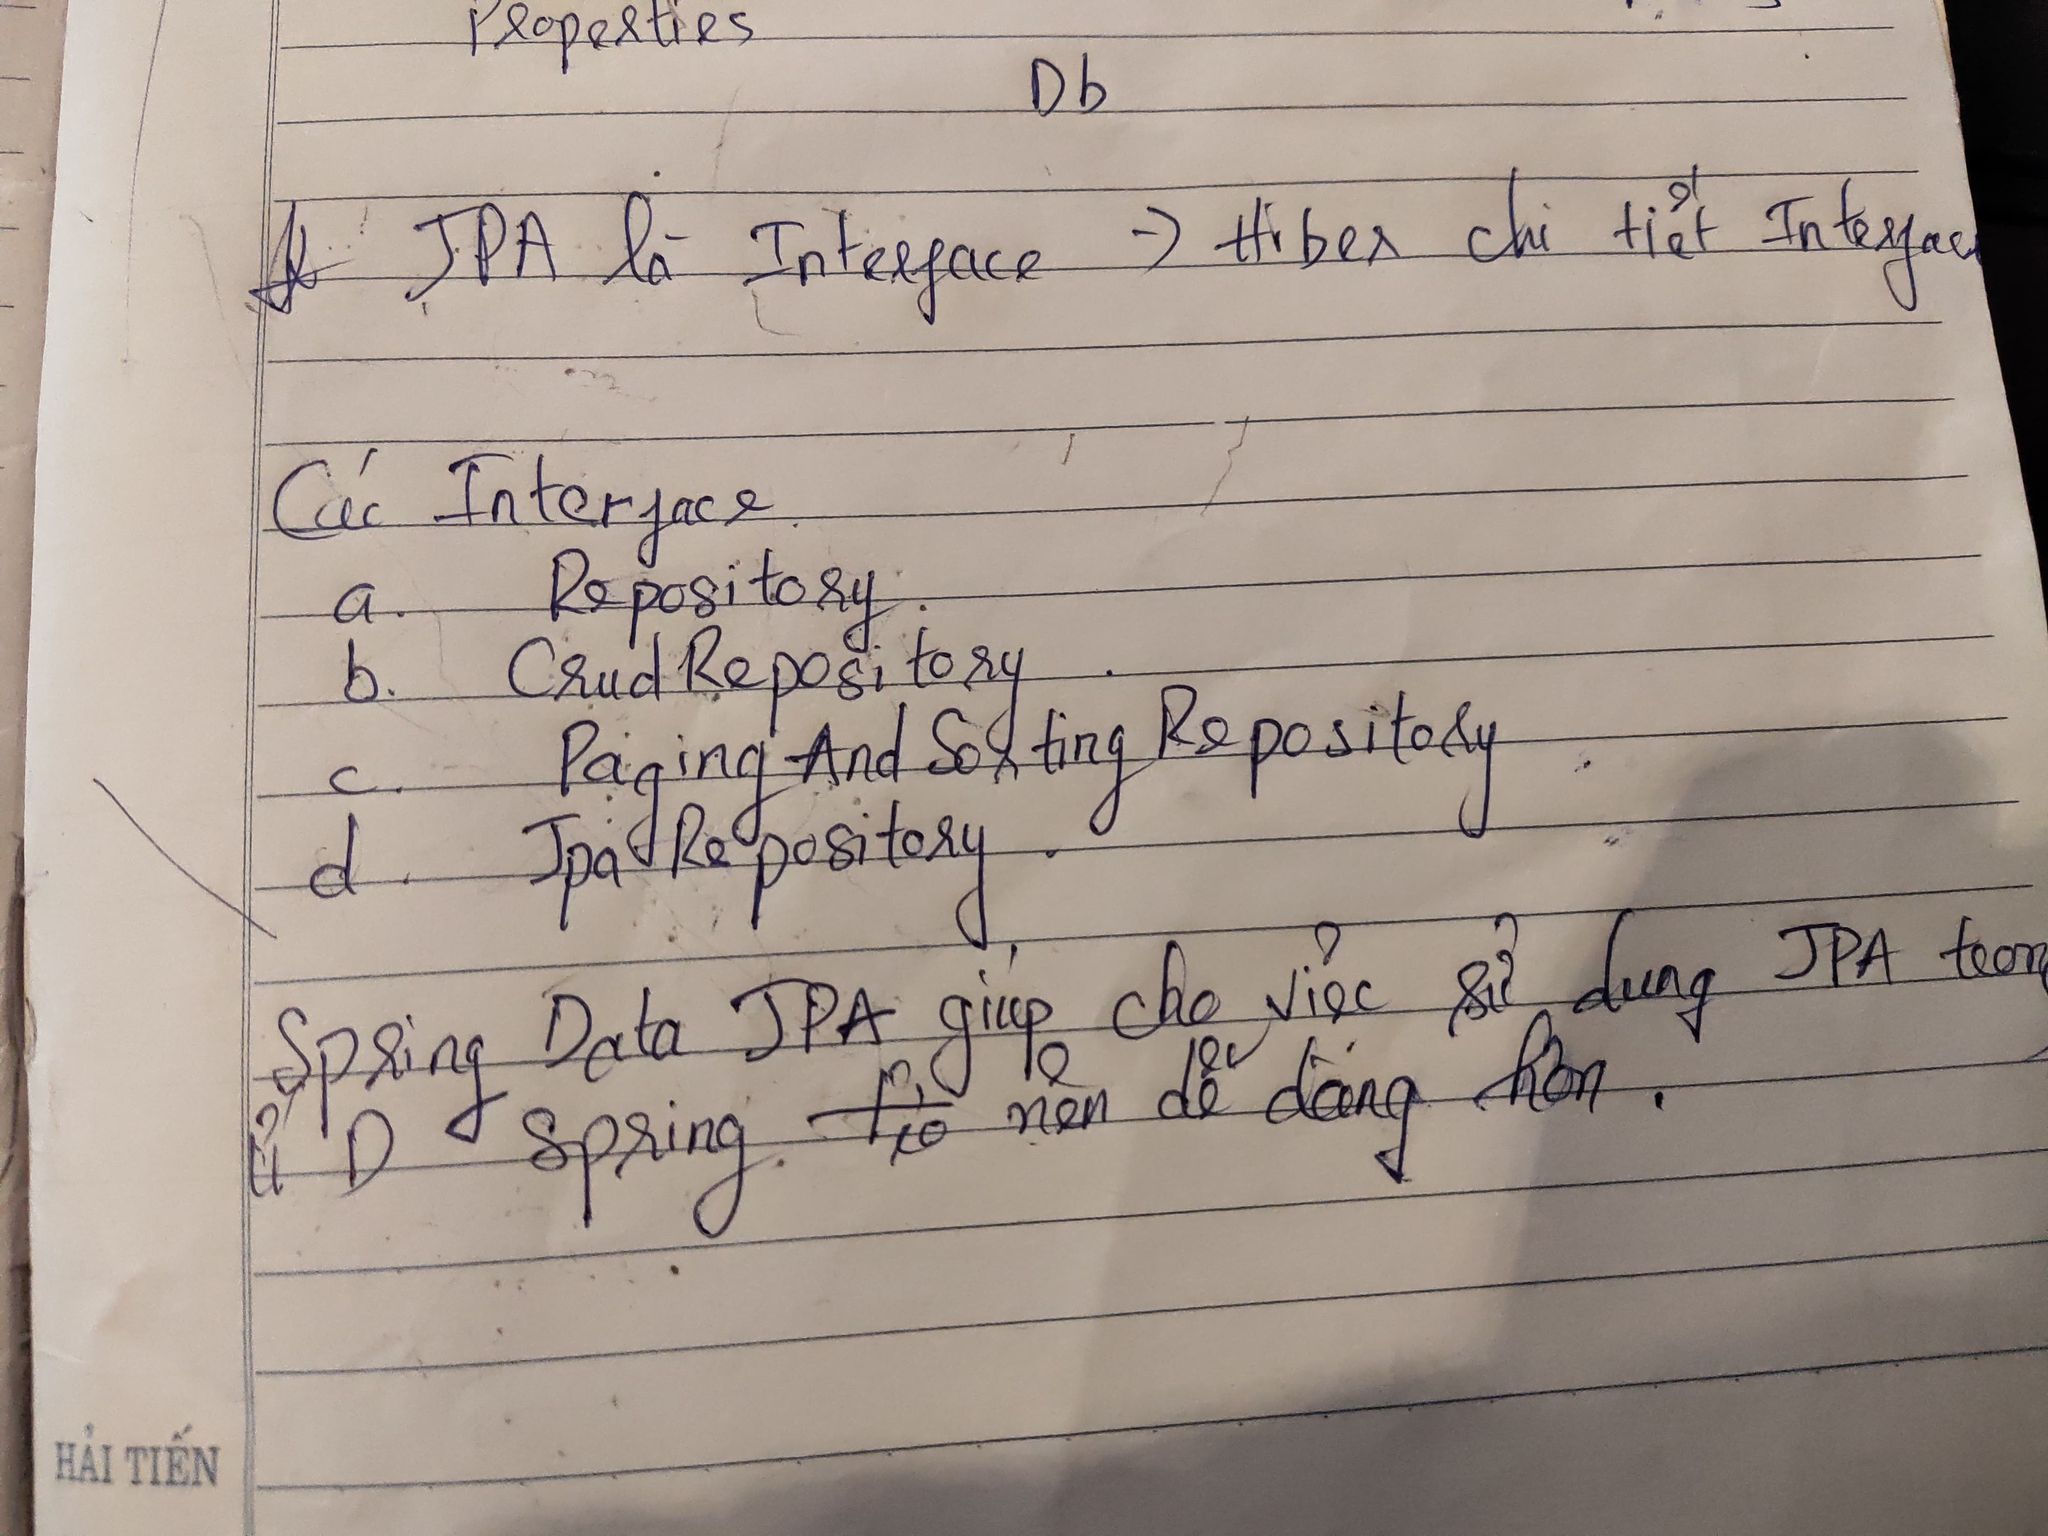 Properties
Db
JPA là Interface -> Hiber chi tiết Interface
Các Interface.
a. Repository.
b. CrudRepository.
c. PagingAndSortingRepository.
d. JpaRepository.
Spring Data JPA giúp cho việc sử dung JPA
D Spring. nên dễ dàng hơn.
HẢI TIẾN